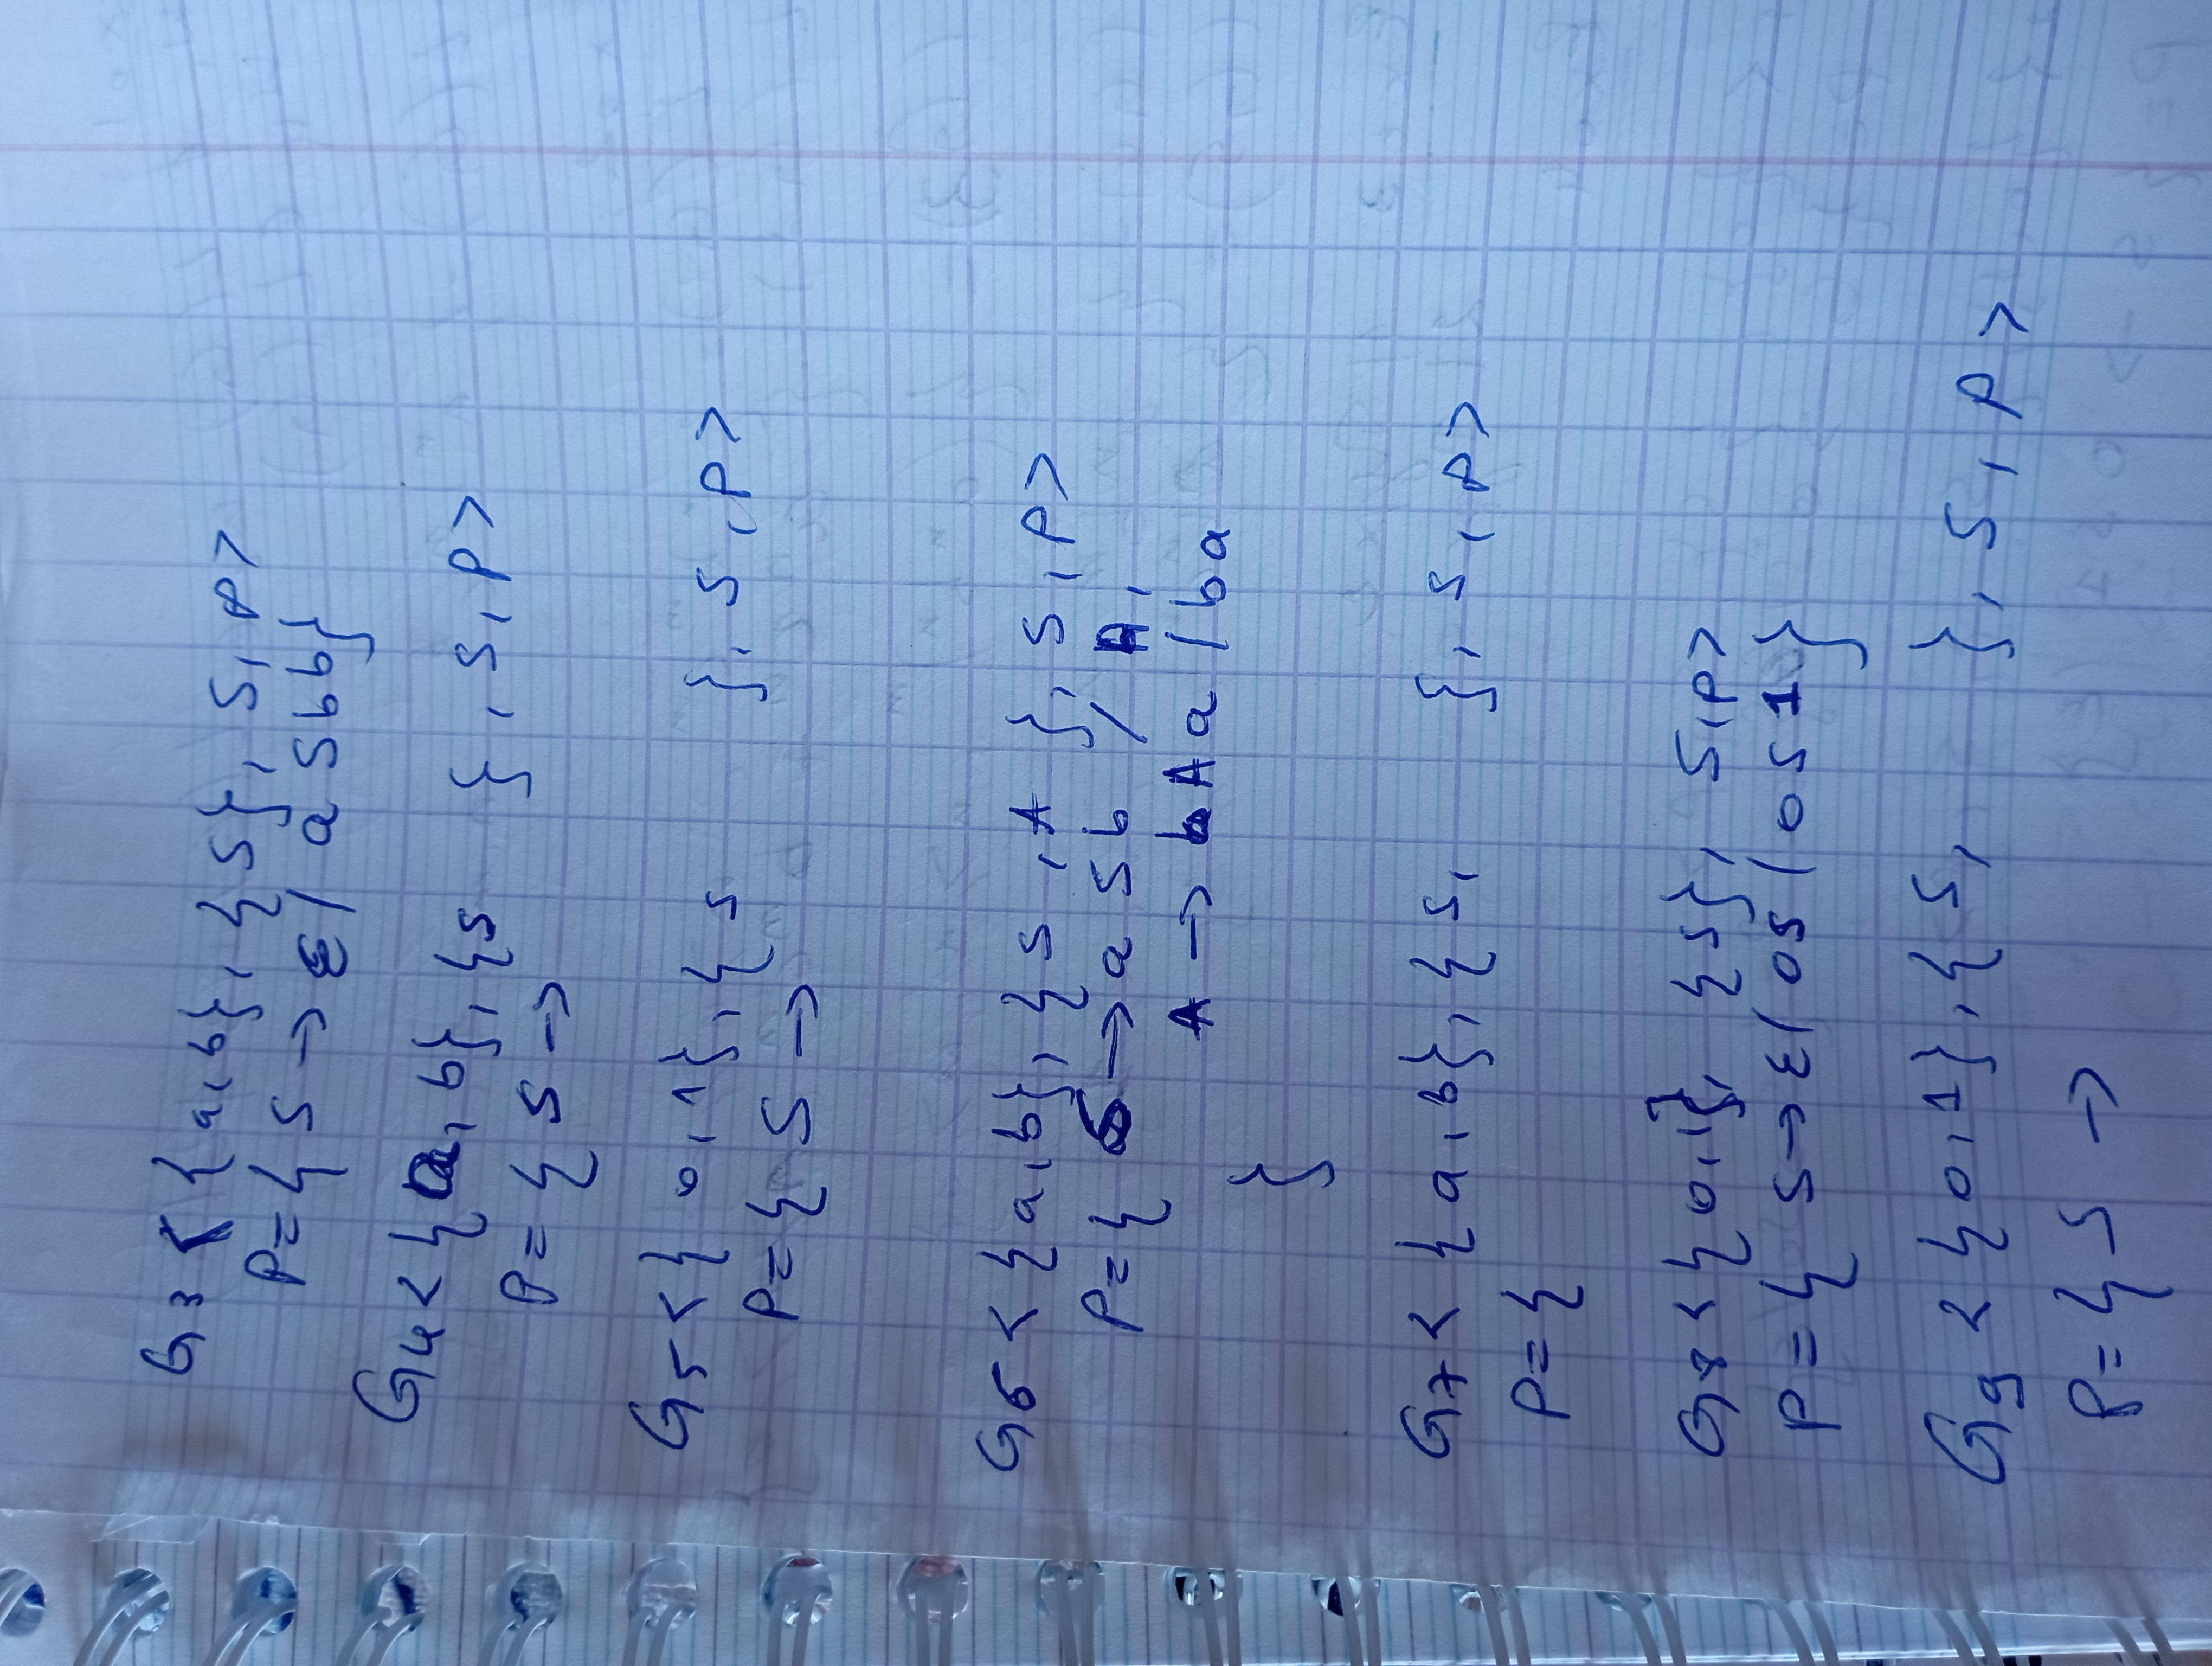 G3 < {a,b},{S}, S,P>
P={ S → ε/ a Sbb}
G4 < {a,b},{S },S,P>
P={ S →
G5 < { 0,1},{S },S,P>
P={ S →
G6 < {a,b},{S,A },S,P>
P={ S → a Sb / A,
A → bAa / ba
}
G7 < {a,b},{S, },S,P>
P={
G8 < {0,1}, {S}, S,P>
P={ S→ε/0S/0S1 }
G9 < {0,1},{S, },S,P>
P={ S →